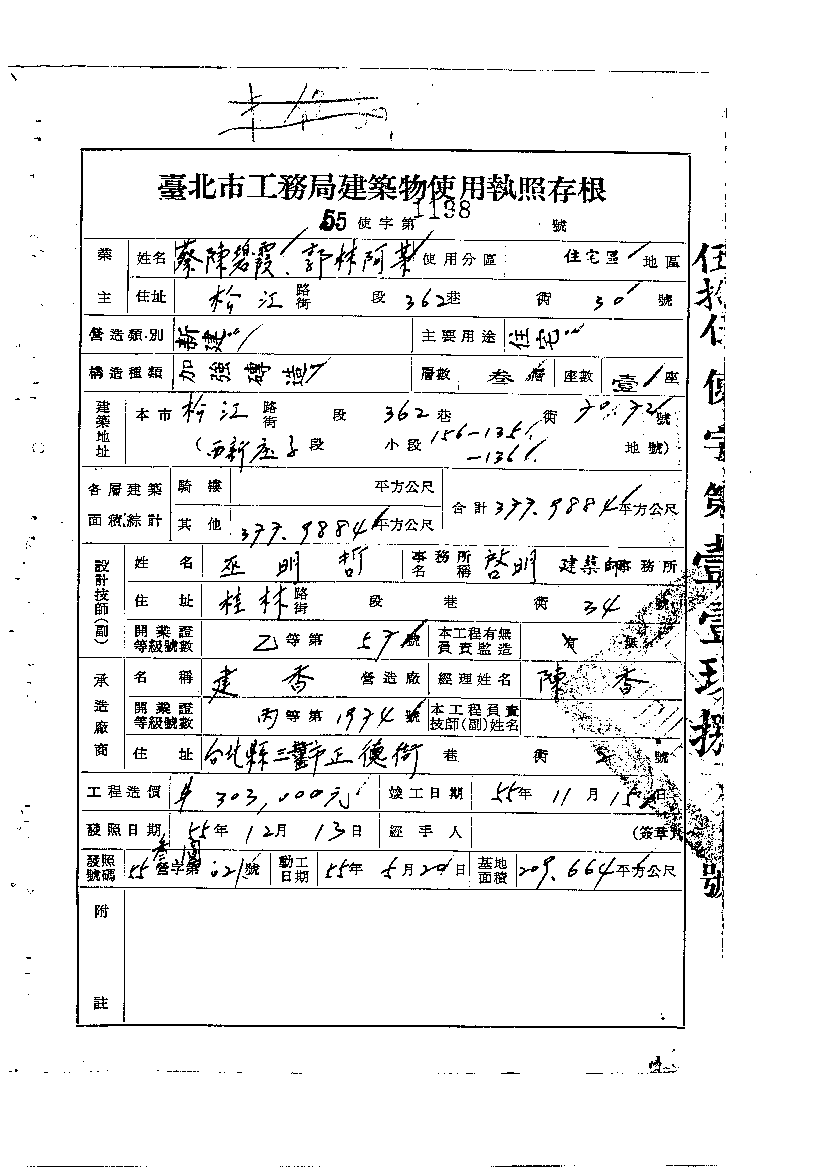 臺北市工務局建築物使用執照存根
55 使字第 1198 號
業主 姓名 蔡陳碧霞、郭林阿 使用分區 住宅區 地區
住址 松江 路街 段 362巷 衖 30 號
營造類別 新建 主要用途 住宅
構造種類 加強磚造 層數 叁層 座數 壹座
建築地址 本市 松江 路街 段 362巷 衖 70.72 號
(西新庄子段 小段 156-135 地號)
-136
各層建築面積綜計 騎樓 平方公尺 合計 377.9884平方公尺
其他 377.9884平方公尺
設計技師(副) 姓名 巫明哲 事務所名稱 啓明 建築師事務所
住址 桂林 路街 段 巷 衖 34 號
開業證等級號數 乙等第 號 本工程有無負責監造 有 無
承造廠商 名稱 建香 營造廠 經理姓名 陳香
開業證等級號數 丙等第1974號 本工程負責技師(副)姓名
住址 台北縣三重市正德街 巷 衖 號
工程造價 303,000元 竣工日期 55年11月15日
發照日期 55年12月13日 經手人 (簽章)
發照號碼 55 營字第 號 動工日期 55年5月20日 基地面積 209.664平方公尺
附註
伍拾伍使字第壹壹玖捌號